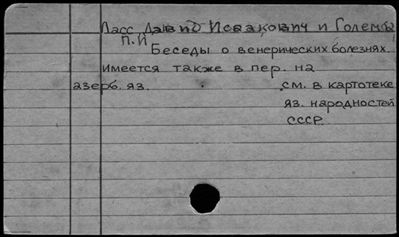 Ласс Давид Исаакович и Голембо
П.И
Беседы о венерических болезнях.
Имеется также в пер. на
азерб. яз. см. в картотеке
яз. народностей
СССР.